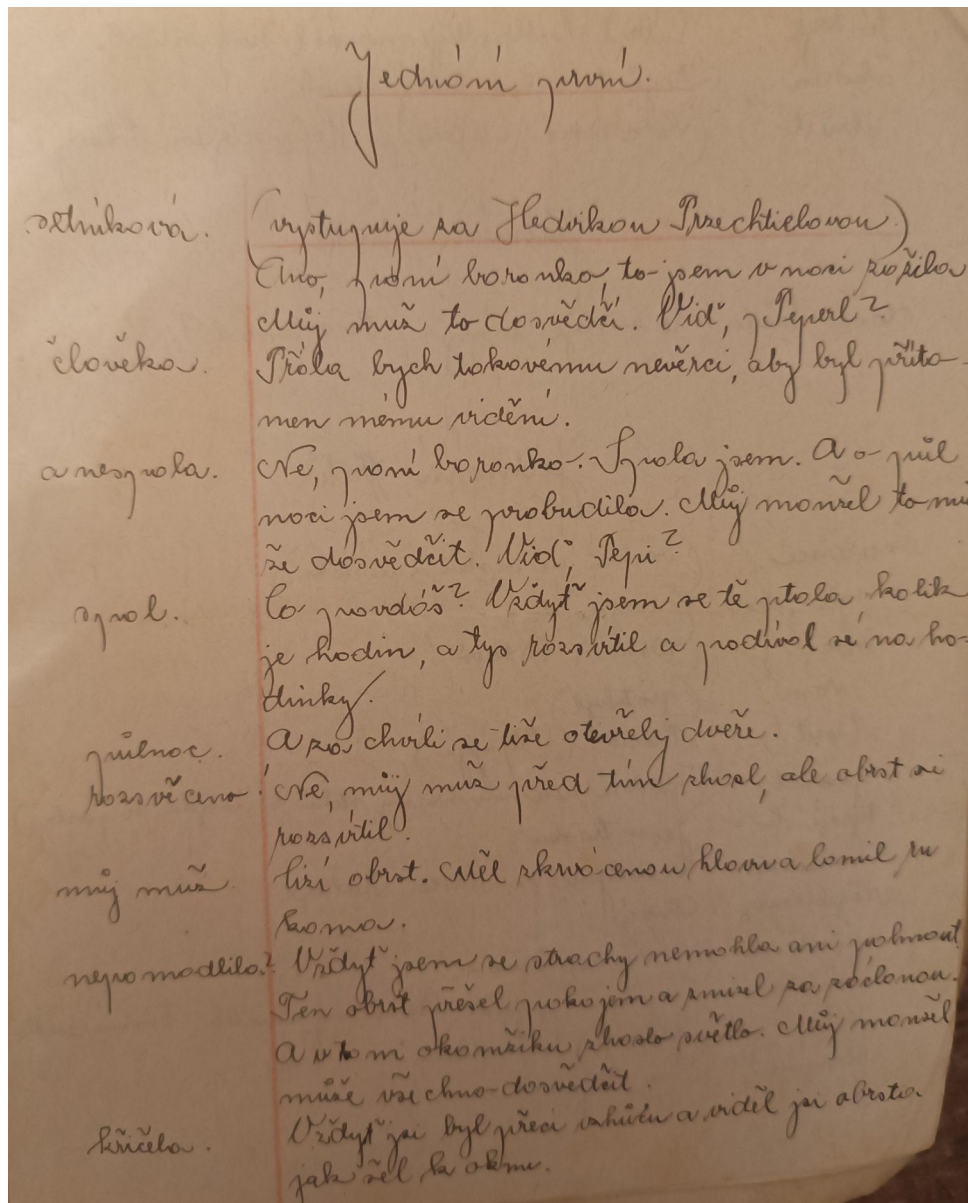 Jednání první.
setníková. (vystupuje za Hedvikou Przechtielovou)
Ano, paní baronko, to jsem v noci zažila
Můj muž to dosvědčí. Viď, Peperl?
člověka. Přála bych takovému nevěrci, aby byl příto-
men mému vidění.
a nespala. Ne, paní baronko. Spala jsem. A o půl
noci jsem se probudila. Můj manžel to mů
že dosvědčit. Viď, Pepi?
spal. Co povdáš? Vždyť jsem se tě ptala, kolik
je hodin, a tys rozsvítil a podíval se na ho-
dinky.
půlnoc. A za chvíli se tiše otevřely dveře.
rozsvíceno! Ne, můj muž před tím zhasl, ale obrst si
rozsvítil.
můj muž cizí obrst. Měl zkrvácenou hlavu a lomil ru
kama.
nepomodlila? Vždyť jsem se strachy nemohla ani pohnout
Ten obrst přešel pokojem a zmizel za záclonou.
A v tom okamžiku zhaslo světlo. Můj manžel
může všechno dosvědčit.
křičela. Vždyť jsi byl přeci vzhůru a viděl jsi obrsta
jak šel k oknu.